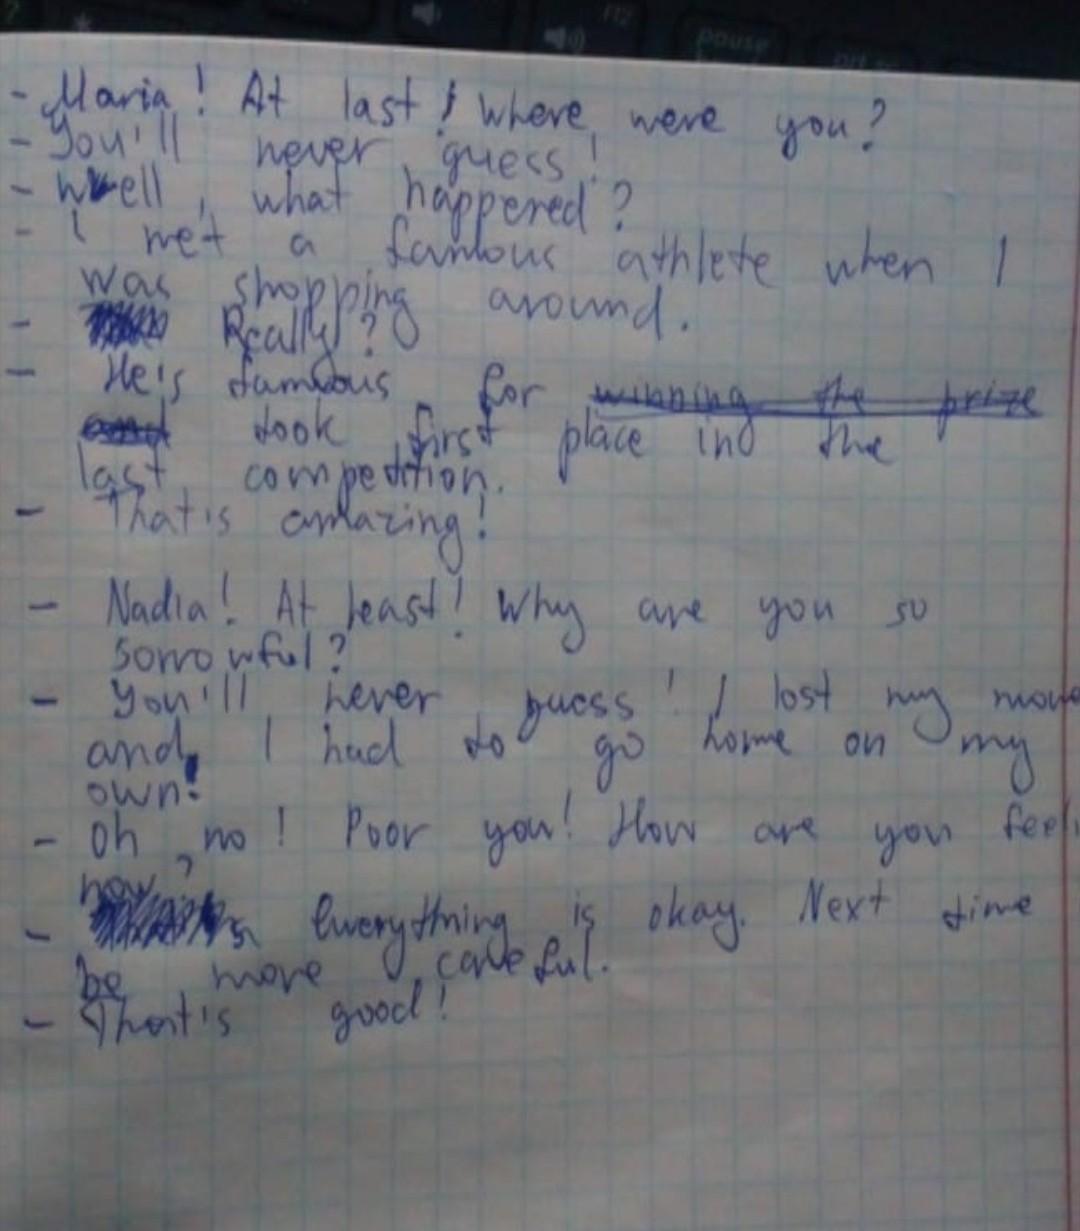 pause
- Maria! At last! where were you?
- You'll never guess!
- Well, what happered?
- I met a famous athlete when I
was shopping around.
- Really?
- He's famous for winning the prize
and took first place in the
last competition.
- That's amazing!
- Nadia! At least! Why are you so
sorrowful?
- You'll never guess! I lost my mone
and I had to go home on my
own!
- Oh no! Poor you! How are you feeli
now?
- Everything is okay. Next time
be more careful.
- That's good!